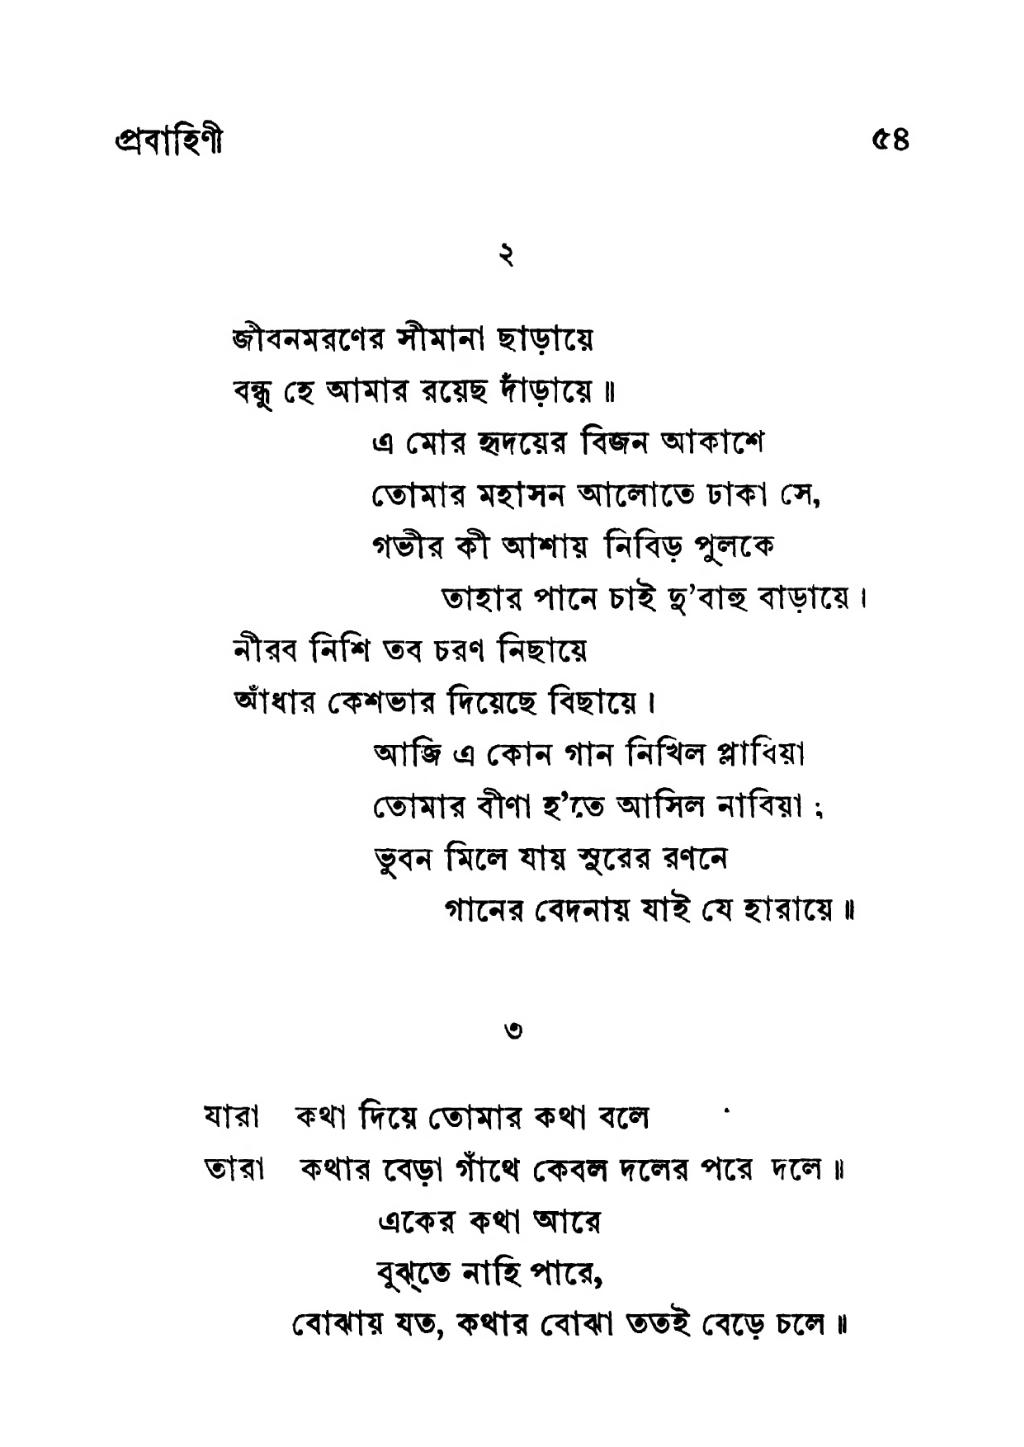 প্রবাহিণী ৫৪
২
জীবনমরণের সীমানা ছাড়ায়ে
বন্ধু হে আমার রয়েছ দাঁড়ায়ে॥
এ মোর হৃদয়ের বিজন আকাশে
তোমার মহাসন আলোতে ঢাকা সে,
গভীর কী আশায় নিবিড় পুলকে
তাহার পানে চাই দু’বাহু বাড়ায়ে।
নীরব নিশি তব চরণ নিছায়ে
আঁধার কেশভার দিয়েছে বিছায়ে।
আজি এ কোন গান নিখিল প্লাবিয়া
তোমার বীণা হ’তে আসিল নাবিয়া;
ভুবন মিলে যায় সুরের রণনে
গানের বেদনায় যাই যে হারায়ে॥
৩
যারা কথা দিয়ে তোমার কথা বলে
তারা কথার বেড়া গাঁথে কেবল দলের পরে দলে॥
একের কথা আরে
বুঝ্‌তে নাহি পারে,
বোঝায় যত, কথার বোঝা ততই বেড়ে চলে॥